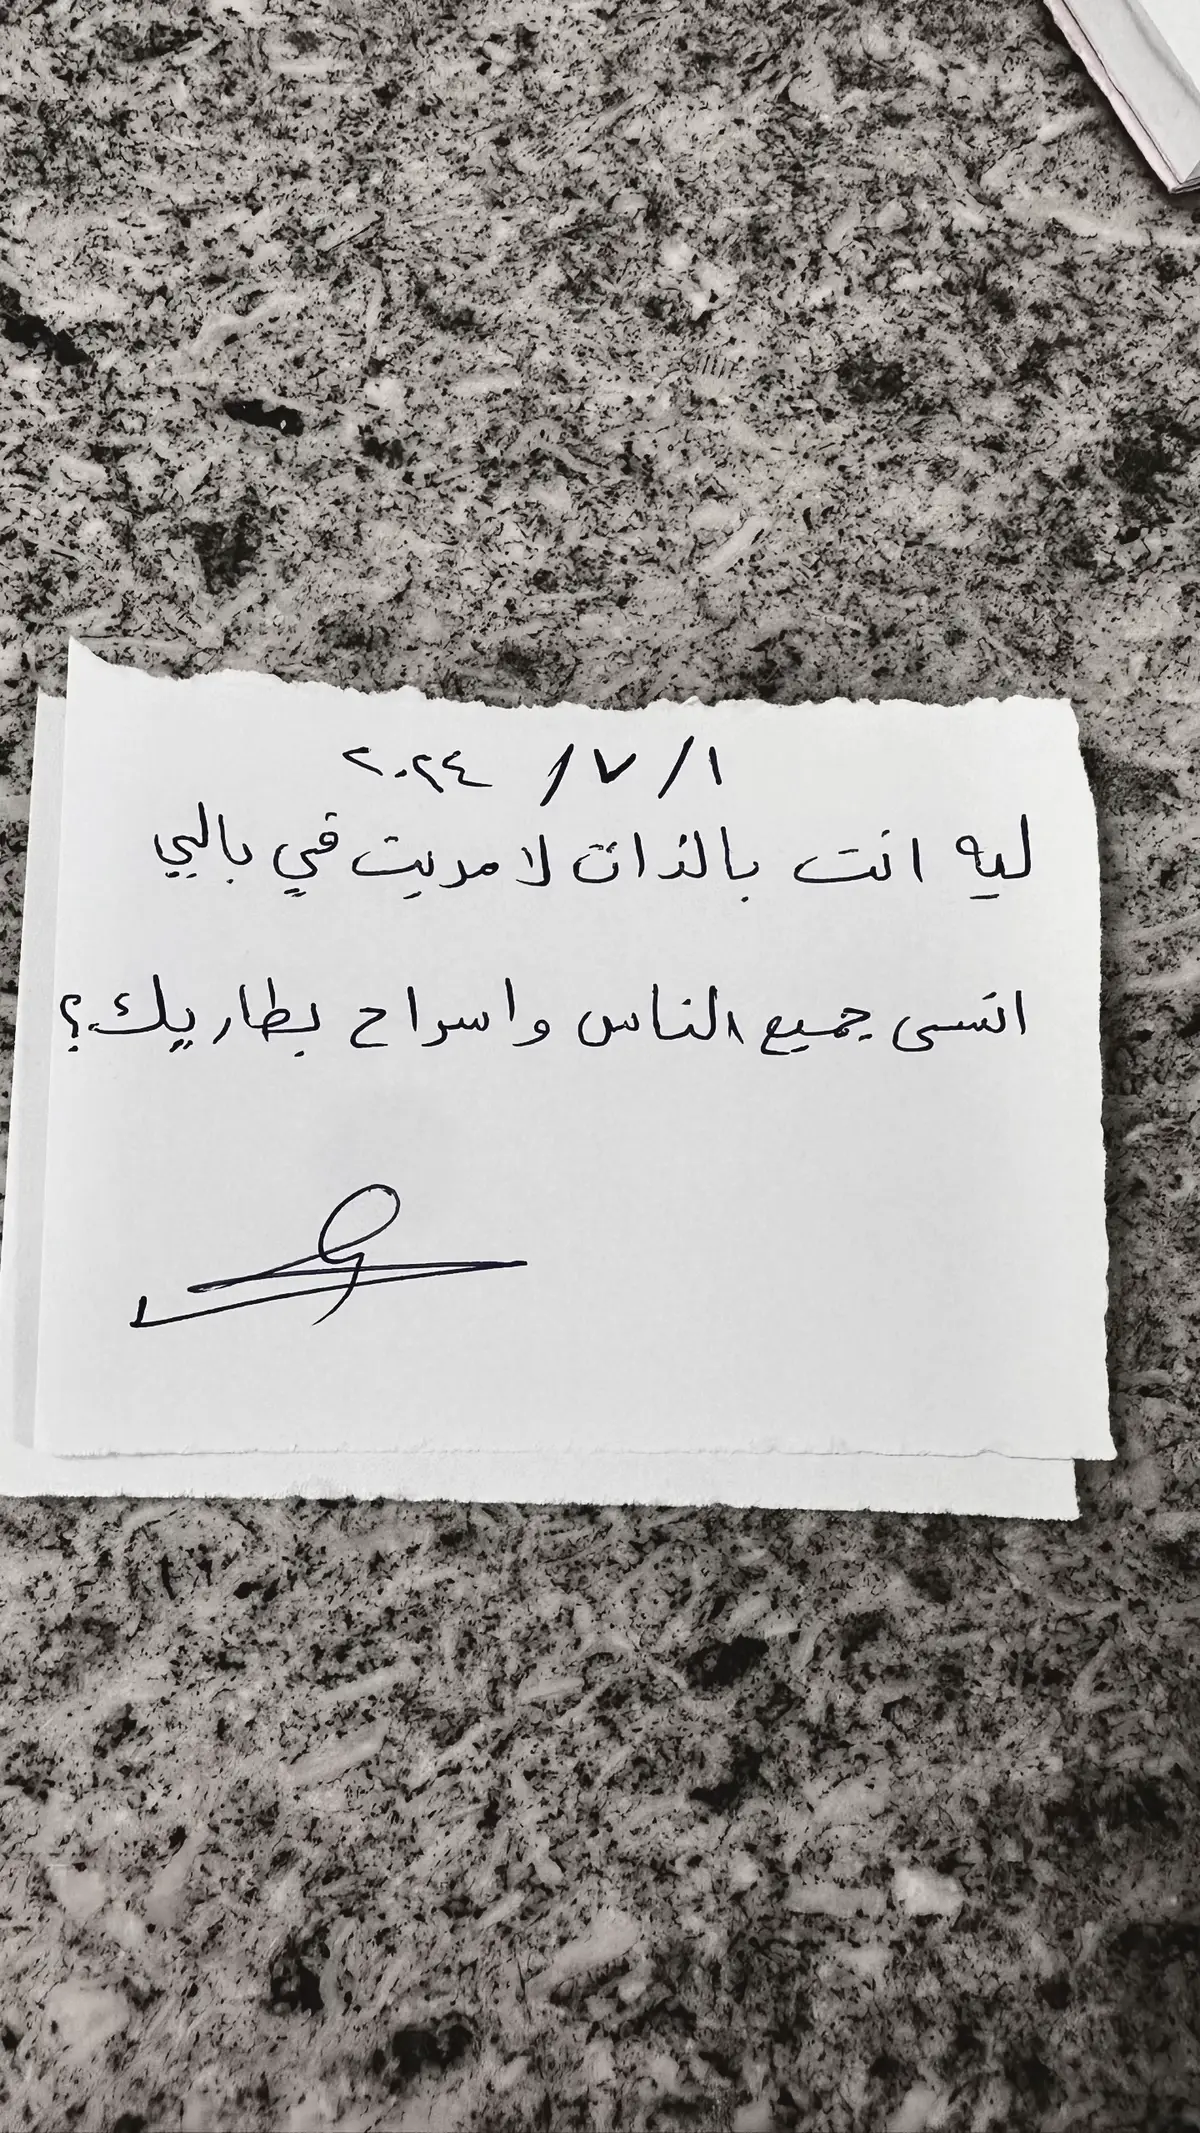 ١/٧/٢٠٢٤
ليه انت بالذات لا مريت في بالي
انسى جميع الناس واسرح بطاريك؟